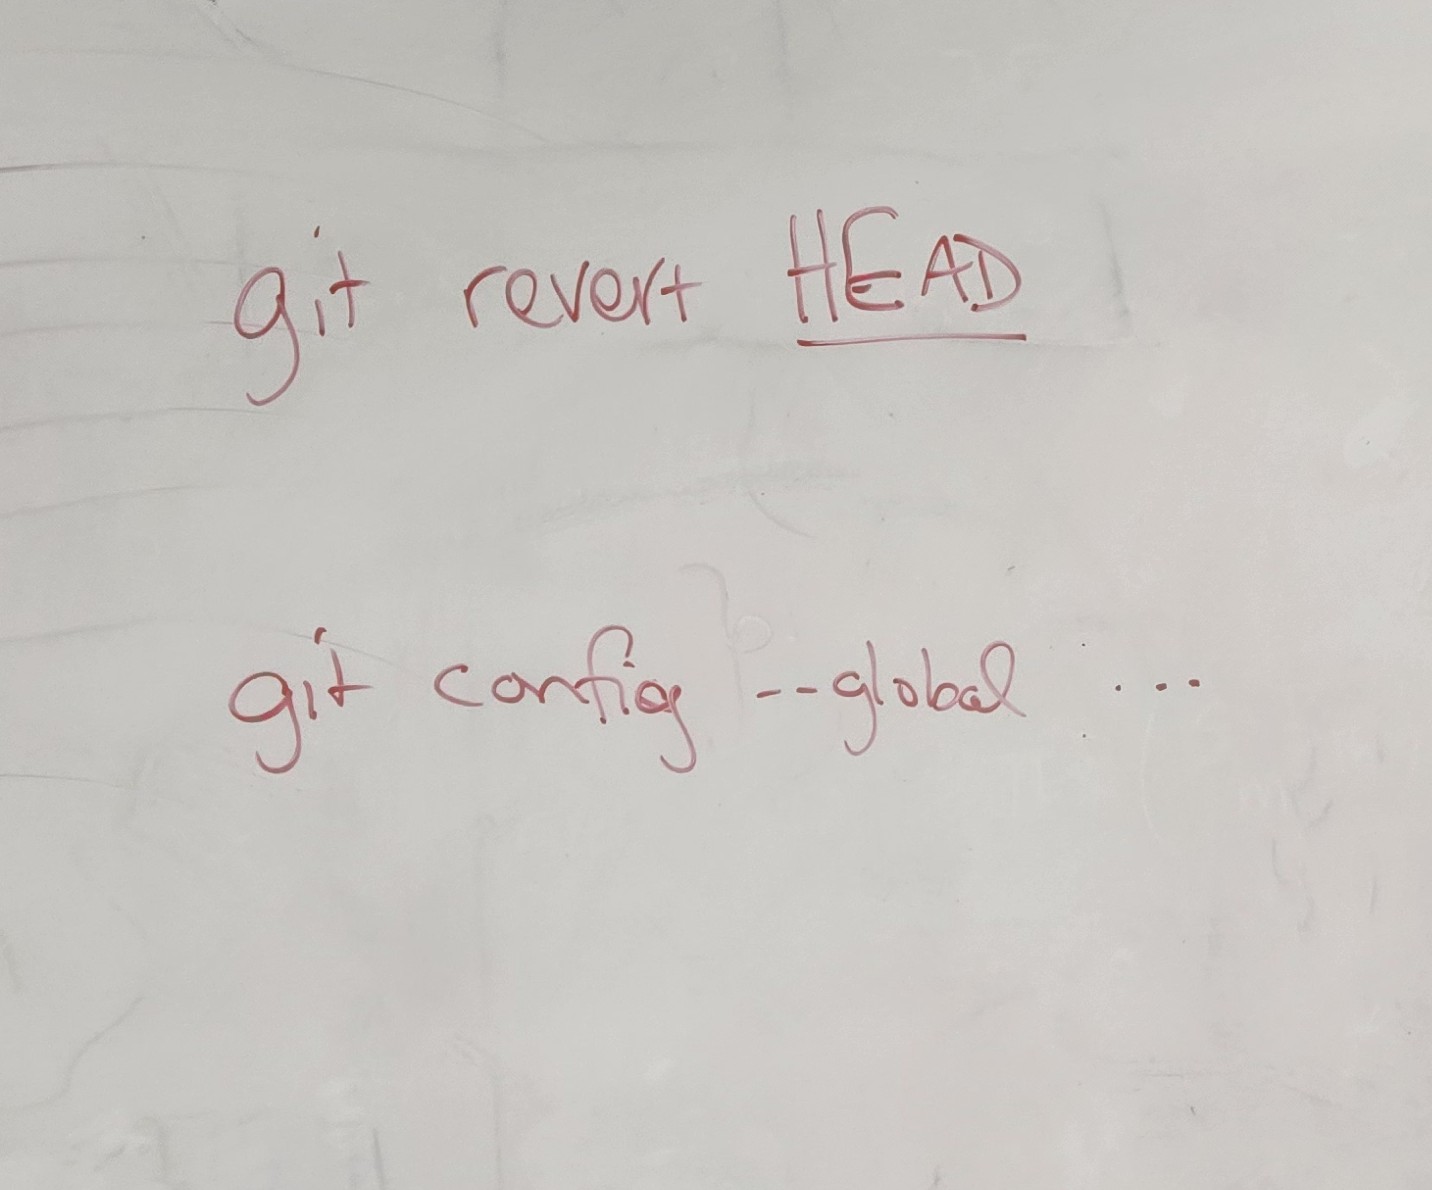 git revert HEAD
git config --global ...